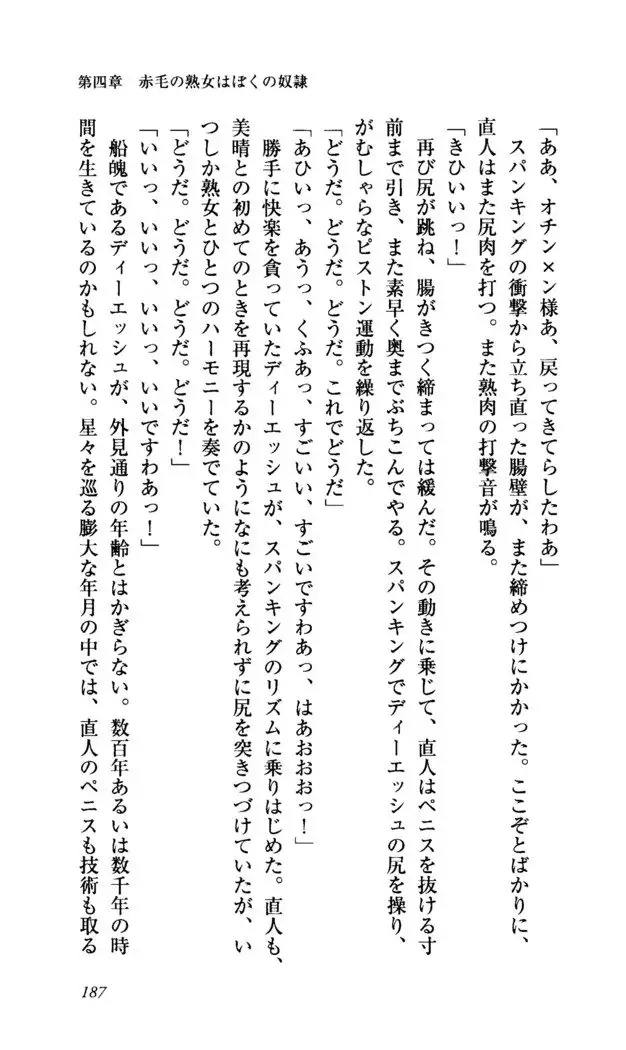 第四章　赤毛の熟女はぼくの奴隷
「ああ、オチン×ン様あ、戻ってきてらしたわあ」
スパンキングの衝撃から立ち直った腸壁が、また締めつけにかかった。ここぞとばかりに、
直人はまた尻肉を打つ。また熟肉の打撃音が鳴る。
「きひいいっ！」
再び尻が跳ね、腸がきつく締まっては緩んだ。その動きに乗じて、直人はペニスを抜ける寸
前まで引き、また素早く奥までぶちこんでやる。スパンキングでディーエッシュの尻を操り、
がむしゃらなピストン運動を繰り返した。
「どうだ。どうだ。どうだ。これでどうだ」
「あひいっ、あうっ、くふあっ、すごいい、すごいですわあっ、はあおおおっ！」
勝手に快楽を貪っていたディーエッシュが、スパンキングのリズムに乗りはじめた。直人も、
美晴との初めてのときを再現するかのようになにも考えられずに尻を突きつづけていたが、い
つしか熟女とひとつのハーモニーを奏でていた。
「どうだ。どうだ。どうだ。どうだ！」
「いいっ、いいっ、いいっ、いいですわあっ！」
船魄であるディーエッシュが、外見通りの年齢とはかぎらない。数百年あるいは数千年の時
間を生きているのかもしれない。星々を巡る膨大な年月の中では、直人のペニスも技術も取る
187